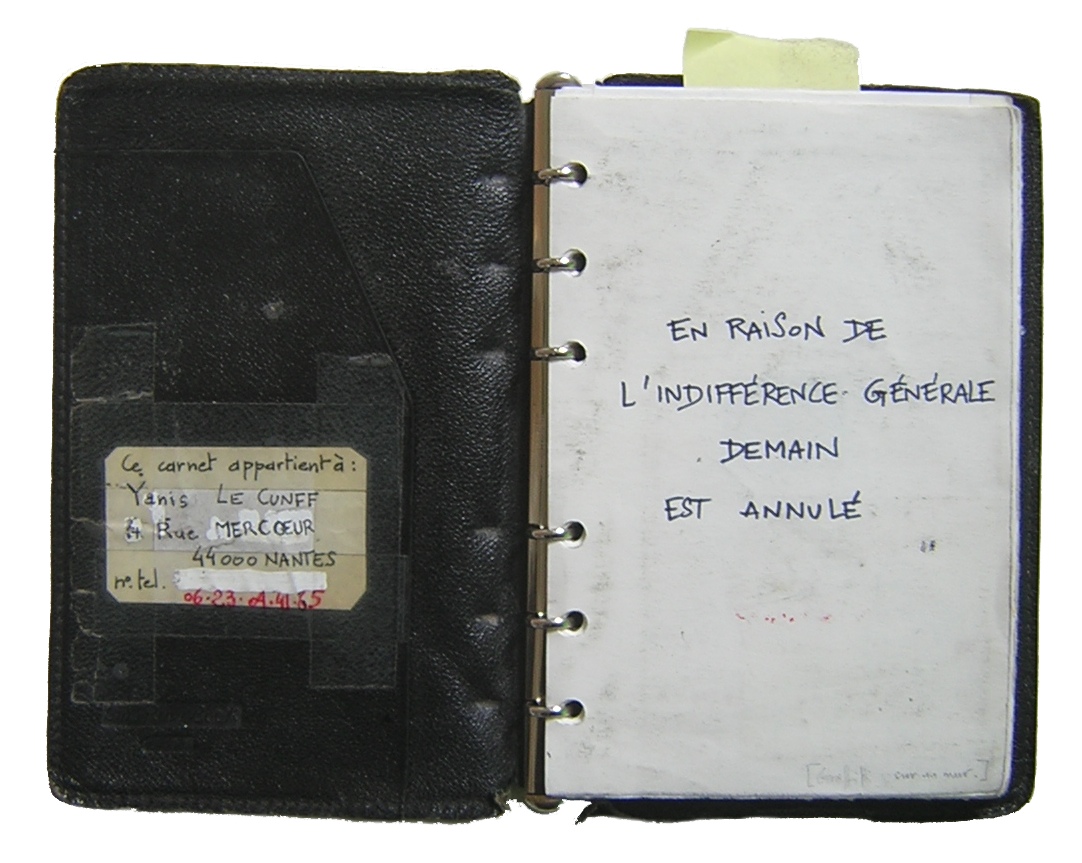 Ce carnet appartient à :
Yanis LE CUNFF
Rue MERCŒUR
44000 NANTES
n°. tel.
06.23.04.41.65
EN RAISON DE
L'INDIFFÉRENCE GÉNÉRALE
DEMAIN
EST ANNULÉ
sur un mur.]